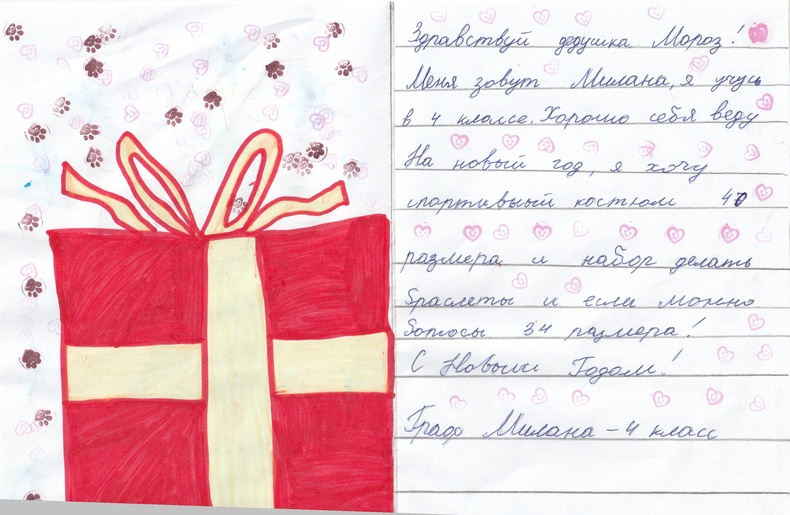 Здравствуй дедушка Мороз!
Меня зовут Милана, я учусь
в 4 классе. Хорошо себя веду
На новый год, я хочу
спортивный костюм 40
размера и набор делать
браслеты и если можно
ботосы 34 размера!
С Новым Годом!
Градо Милана - 4 класс